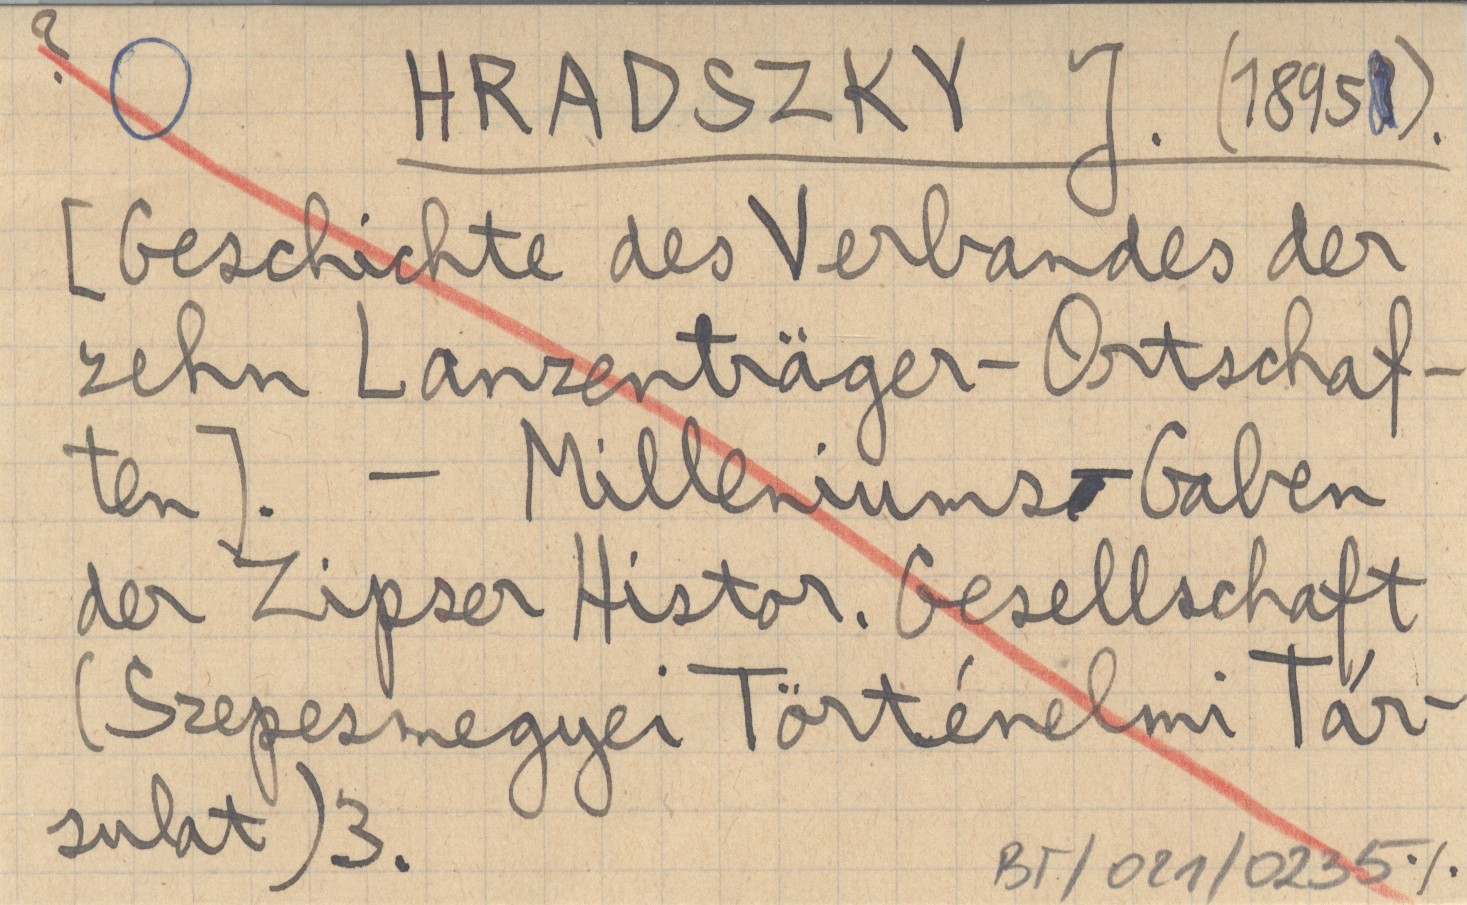 ?
HRADSZKY J. (1895).
[Geschichte des Verbandes der
zehn Lanzenträger-Ortschaf-
ten]. — Milleniums-Gaben
der Zipser Histor. Gesellschaft
(Szepesmegyei Történelmi Tár-
sulat) 3.
BT/021/0235 ./.